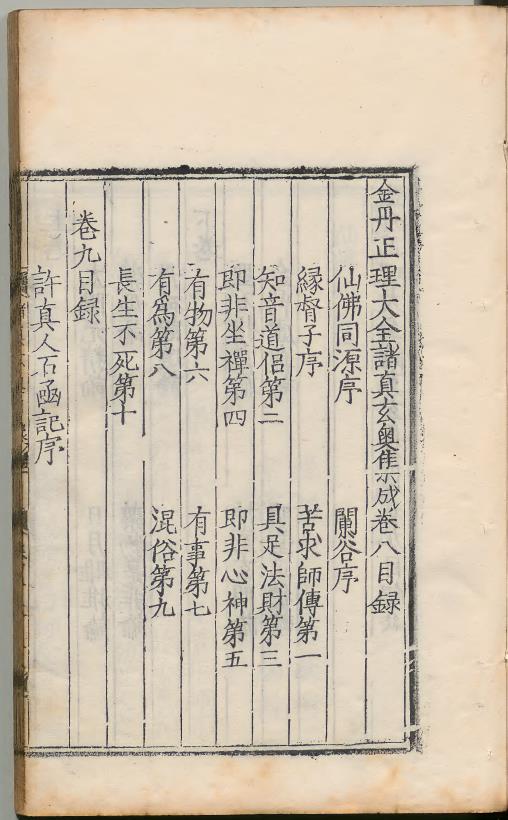 金丹正理大全諸真玄奧集成卷八目録
仙佛同源序　闌谷序
緣督子序　苦求師傳第一
知音道侶第二　具足法財第三
即非坐禪第四　即非心神第五
有物第六　有事第七
有爲第八　混俗第九
長生不死第十
卷九目録
許真人石函記序